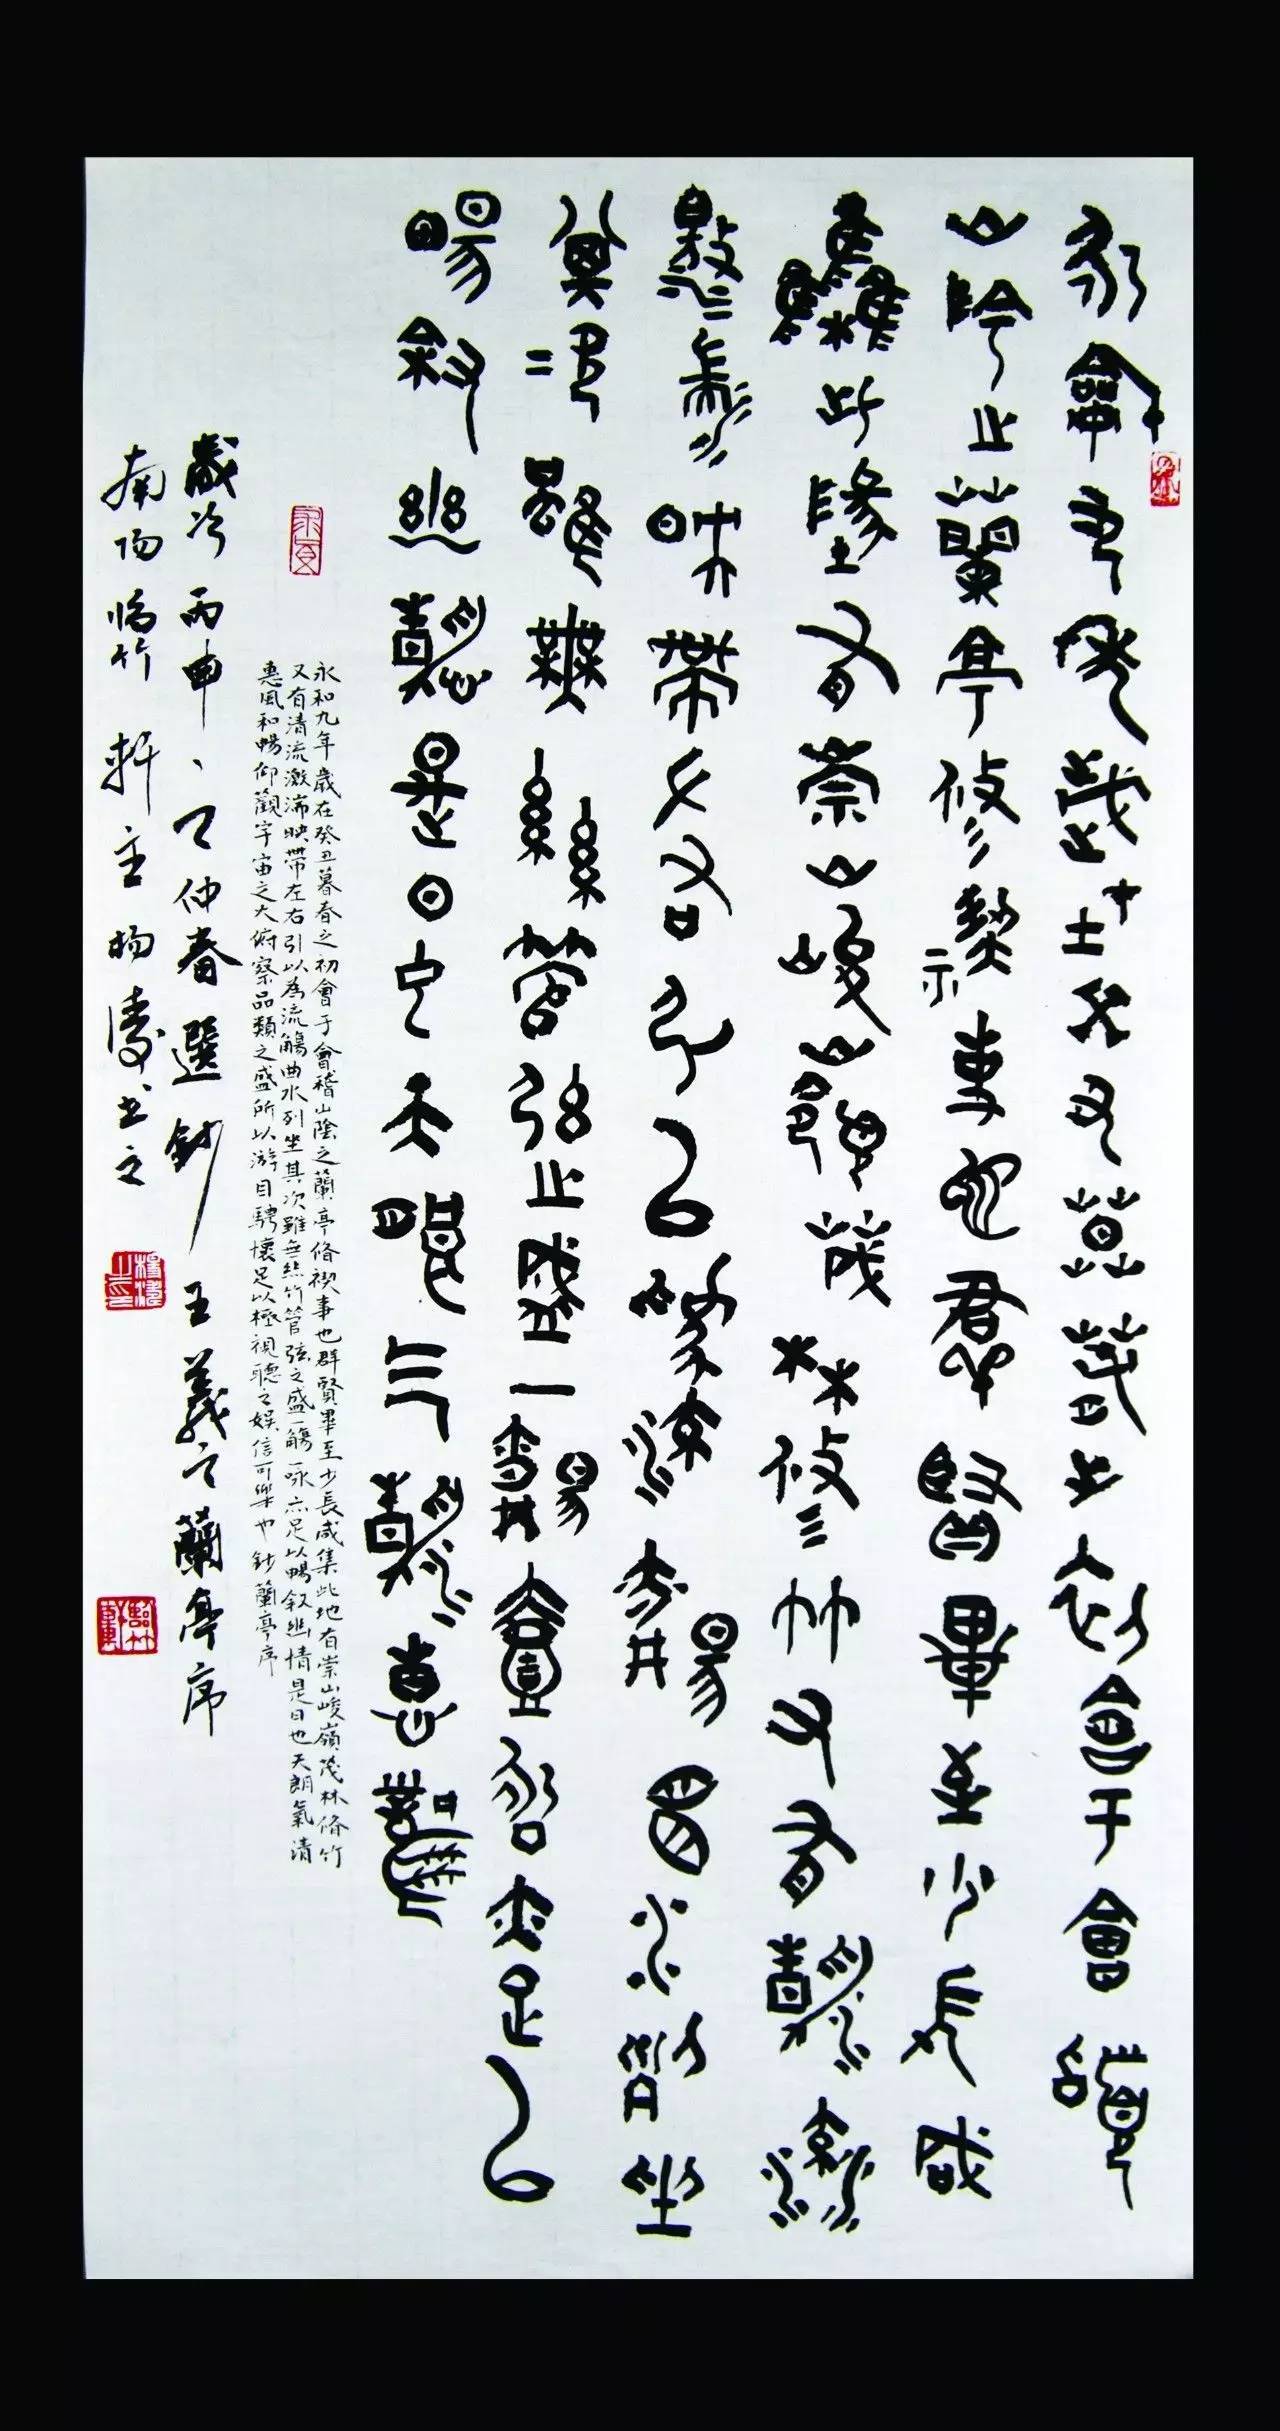 永龢九年歲在癸丑暮春之初會于會稽
山陰之蘭亭修禊事也群賢畢至少長咸
集此地有崇山峻嶺茂林修竹又有清流
激湍映帶左右引以為流觴曲水列坐
其次雖無絲管弦之盛一觴壹詠亦足以
暢敘幽情是日也天朗气清惠風
永和九年歲在癸丑暮春之初會于會稽山陰之蘭亭脩禊事也群賢畢至少長咸集此地有崇山峻嶺茂林脩竹
又有清流激湍映帶左右引以為流觴曲水列坐其次雖無絲竹管弦之盛一觴一詠亦足以暢敘幽情是日也天朗氣清
惠風和暢仰觀宇宙之大俯察品類之盛所以游目騁懷足以極視聽之娛信可樂也鈔蘭亭序
歲次丙申仲春選鈔王羲之蘭亭序
南陽臨竹軒主楊書之